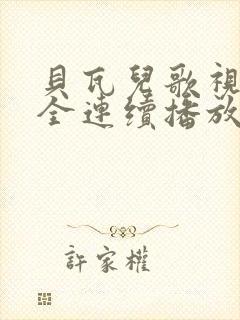 貝瓦兒歌視
全連續播放
許家權